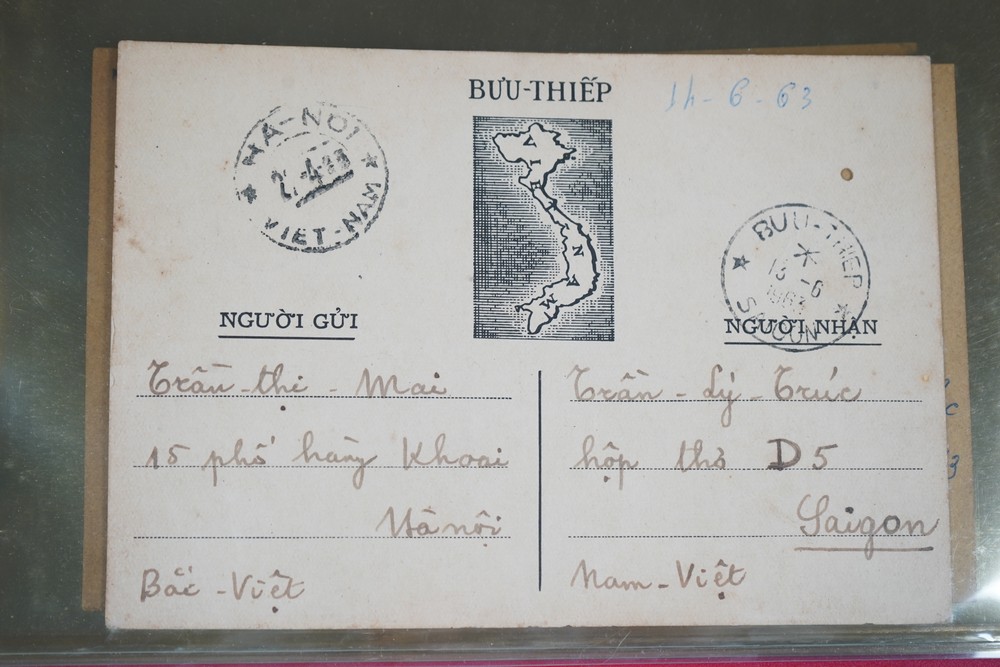 BƯU-THIẾP
14-6-63
HÀ-NỘI
VIỆT-NAM
VIỆT NAM
BƯU-THIẾP
13-6
1963
SAIGON
NGƯỜI GỬI
Trần-thị-Mai
15 phố hàng Khoai
Hà nội
Bắc-Việt
NGƯỜI NHẬN
Trần-Lý-Trúc
hộp thơ D5
Saigon
Nam-Việt